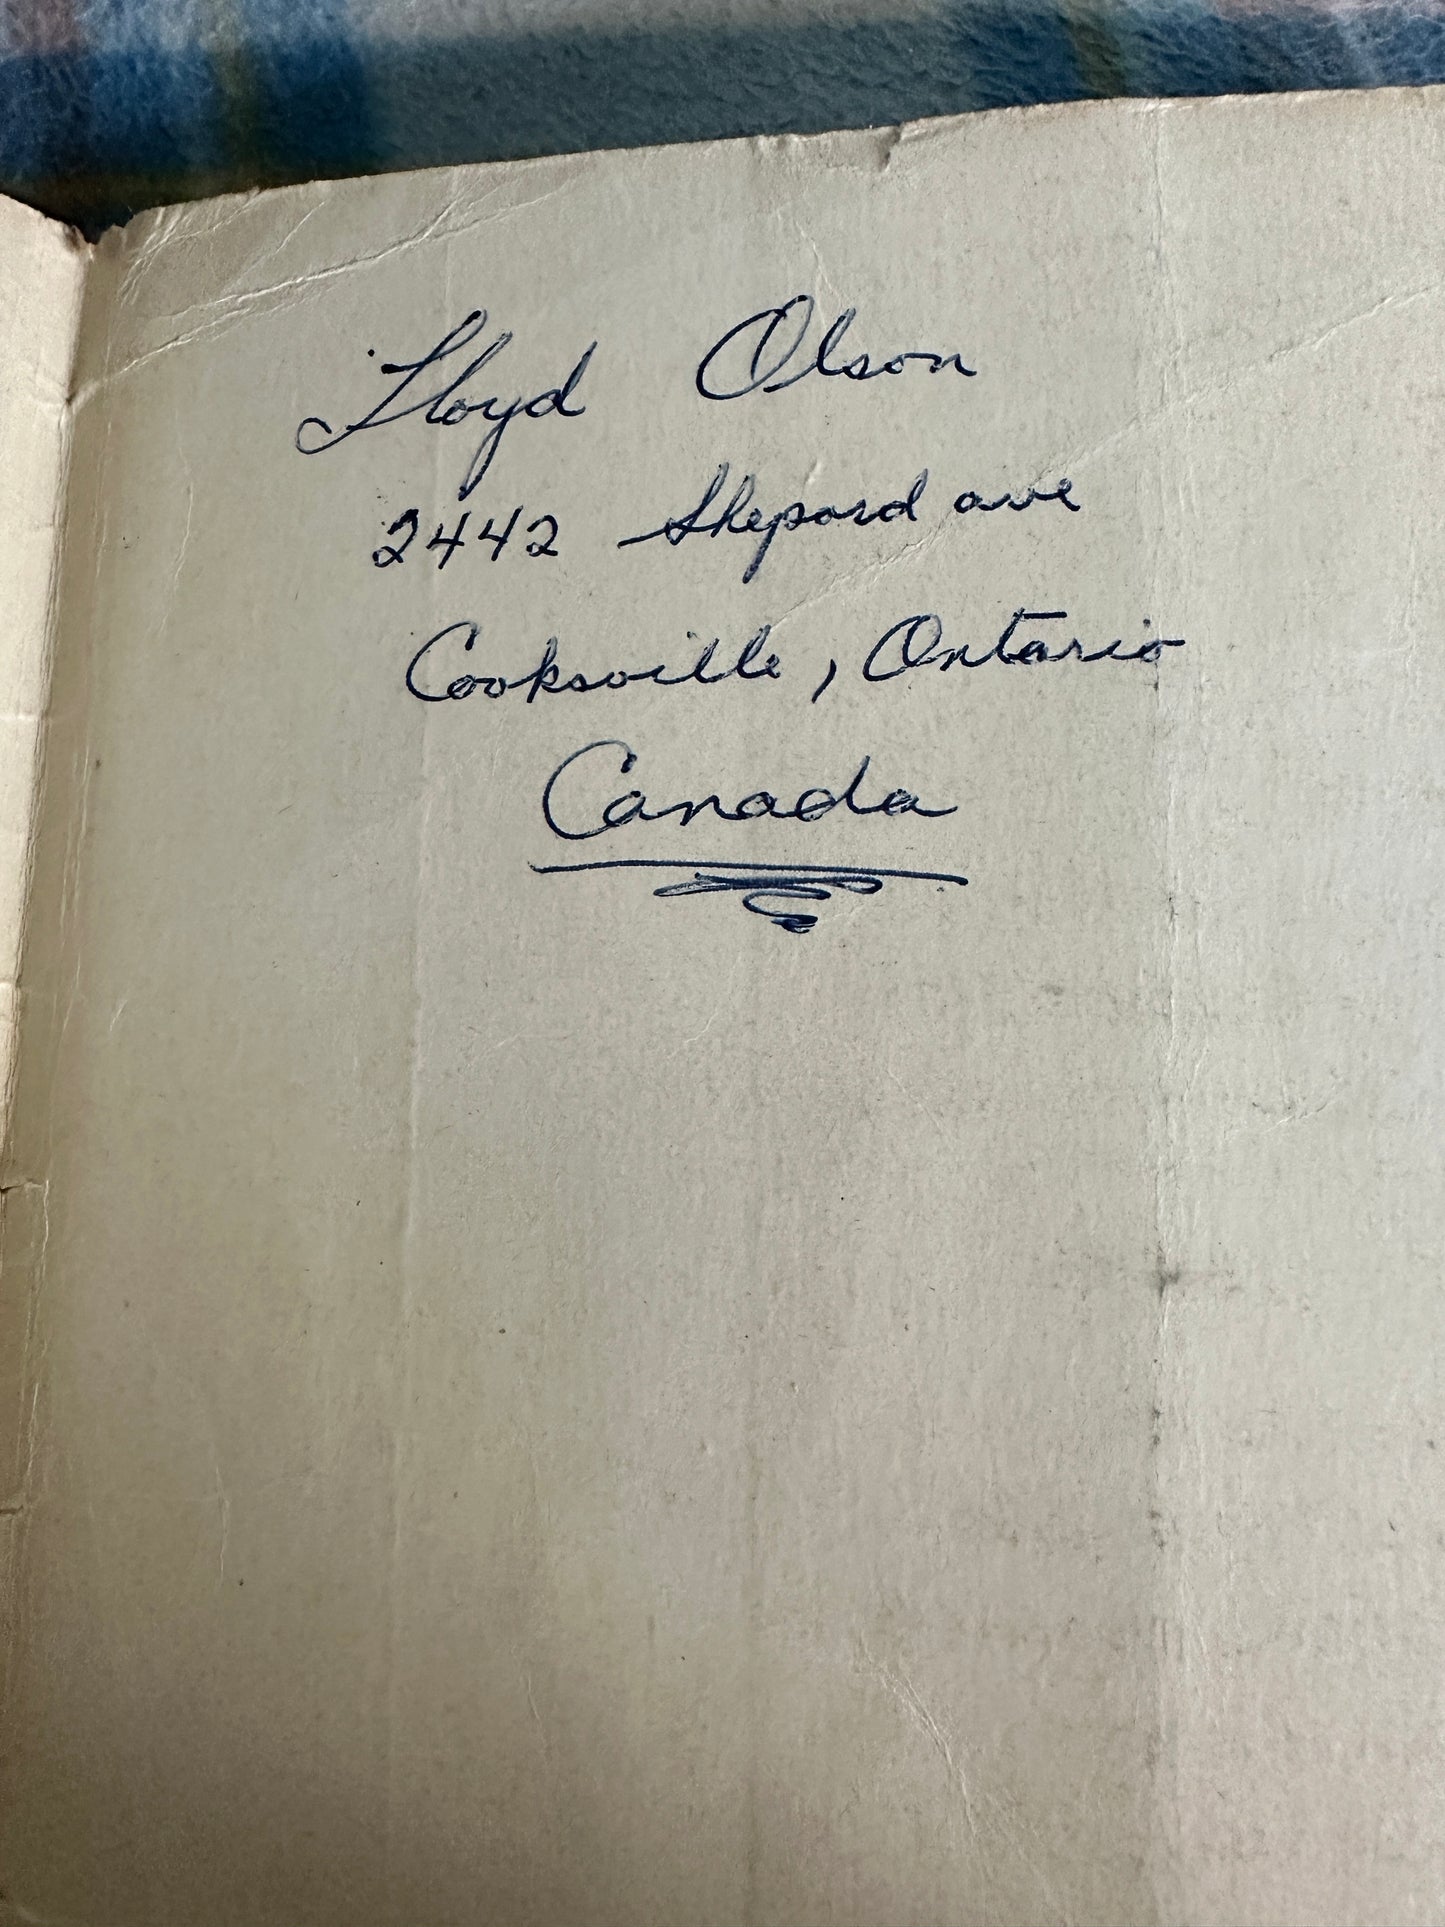 Lloyd Olson
2442 Shepard ave
Cooksville, Ontario
Canada